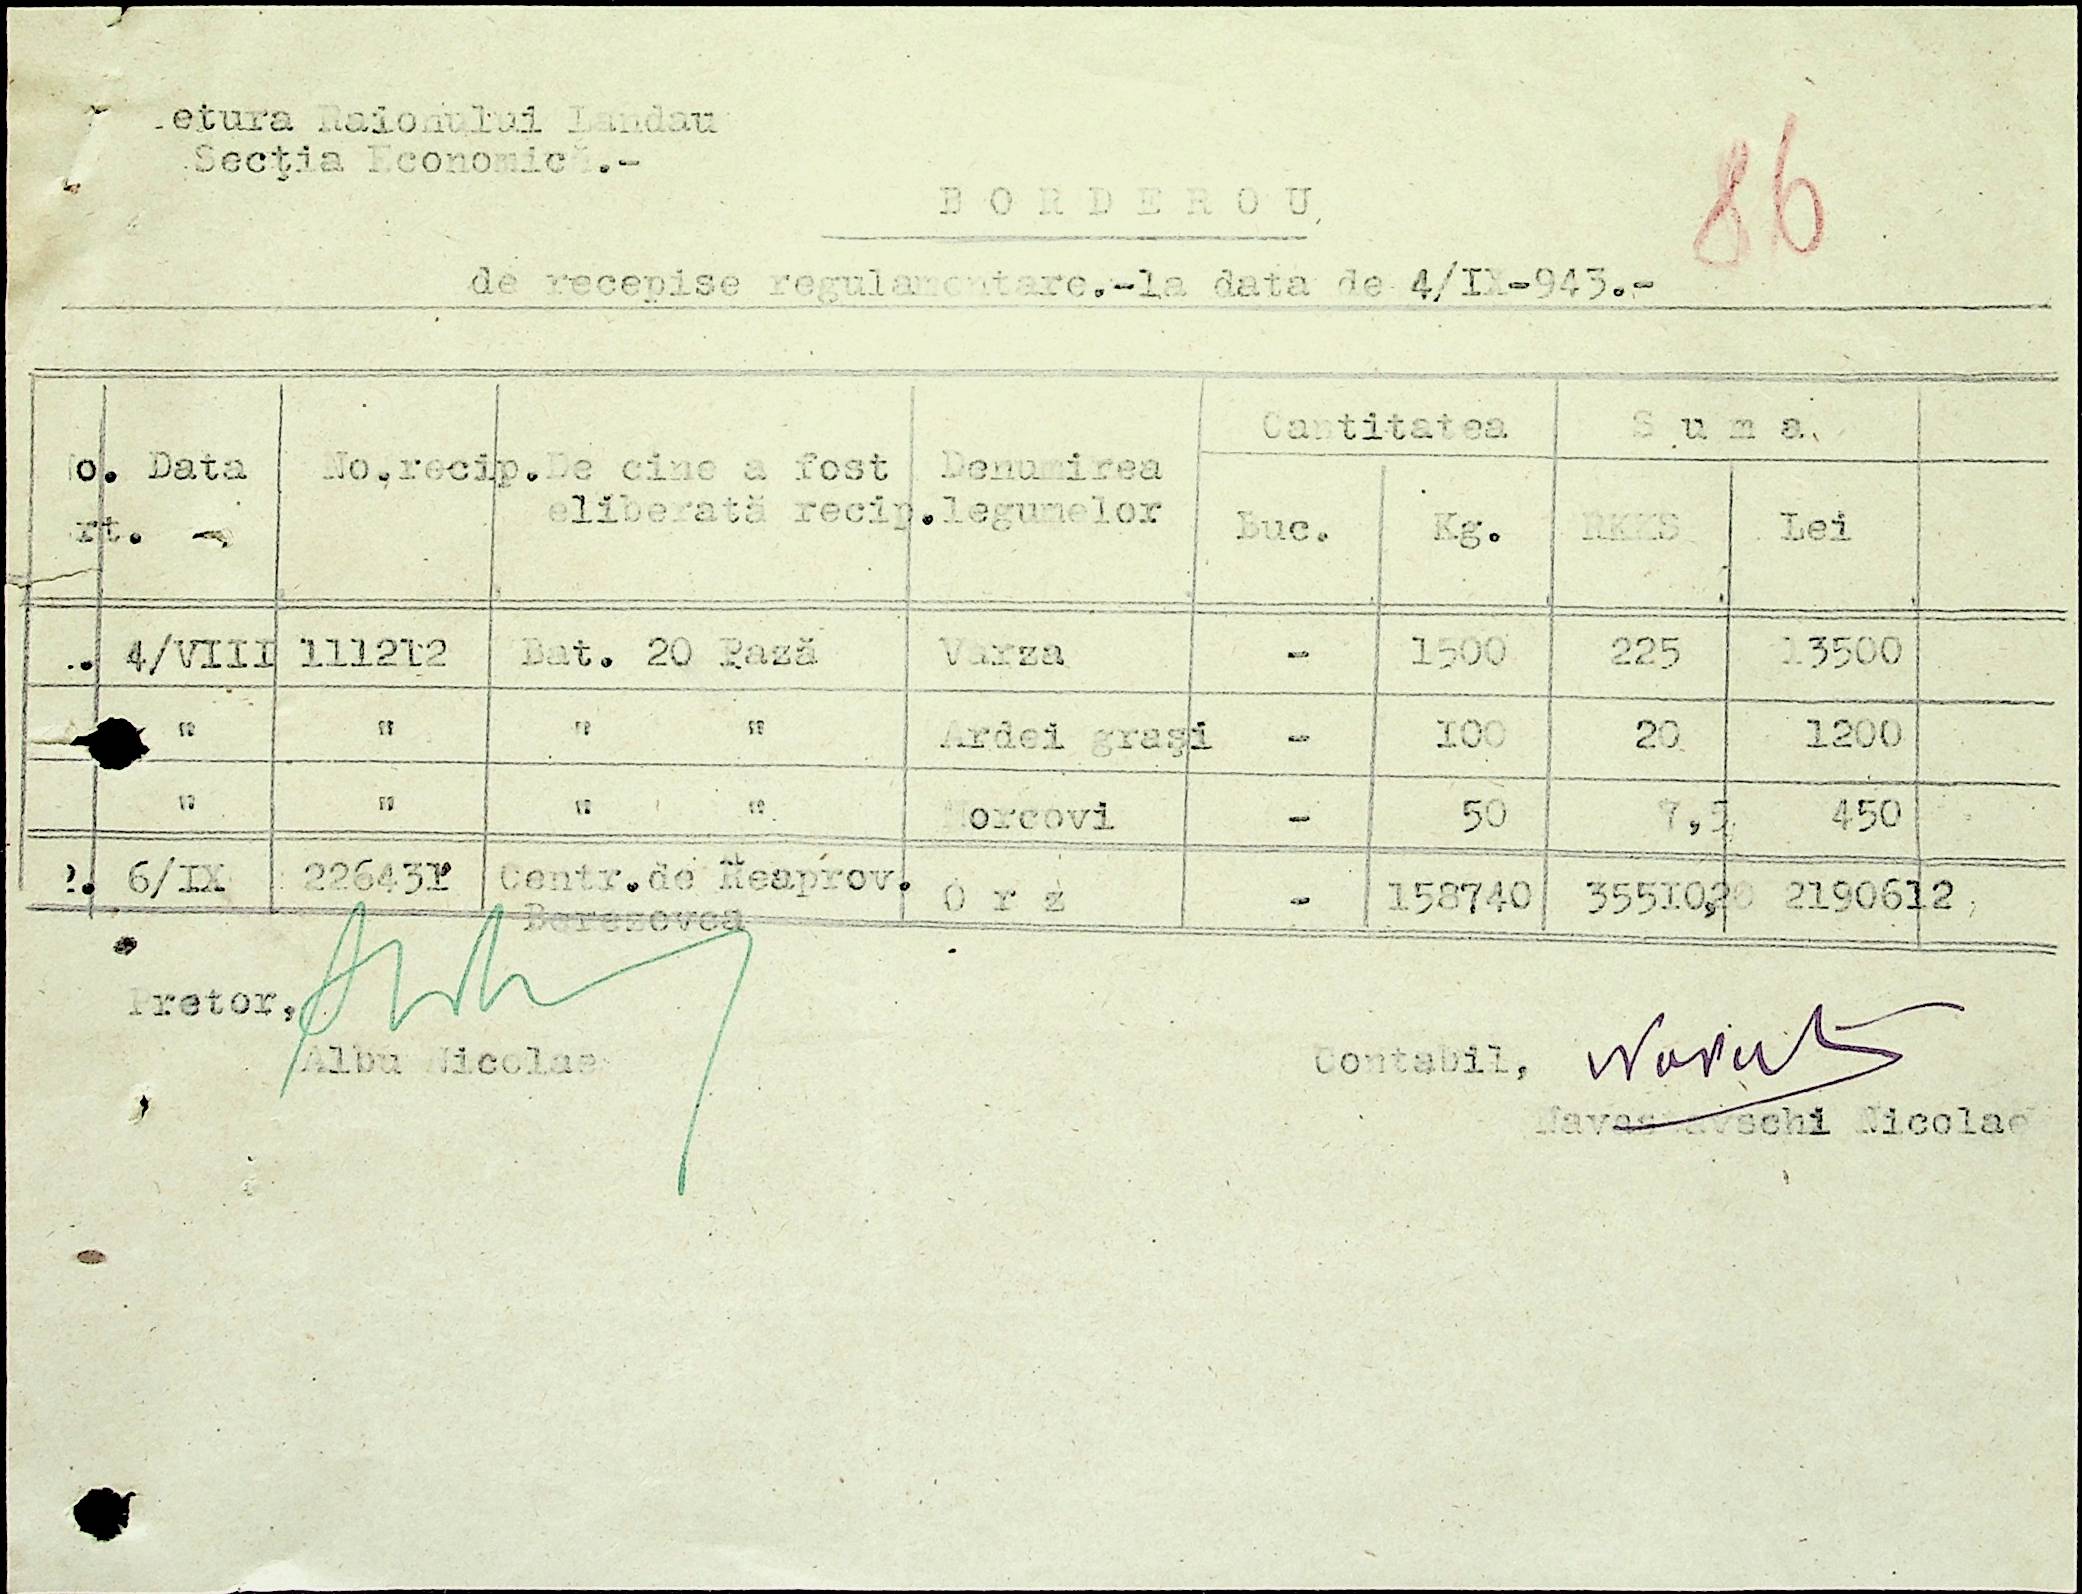 etura Raionului Landau
Secţia Economică.-
86
B O R D E R O U
de recepise regulamentare.-la data de 4/IX-943.-
o. Data No.recip. De cine a fost Denumirea Cantitatea S u m a
rt. eliberată recip. legumelor Buc. Kg. RKKS Lei
. 4/VIII 111212 Bat. 20 Pază Varza - 1500 225 13500
" " " " Ardei graşi - 100 20 1200
" " " " Morcovi - 50 7,5 450
2. 6/IX 226431 Centr.de Reaprov. O r z - 158740 35510,20 2190612
Berezovca
Pretor,
Albu Nicolae
Contabil,
Nicolae